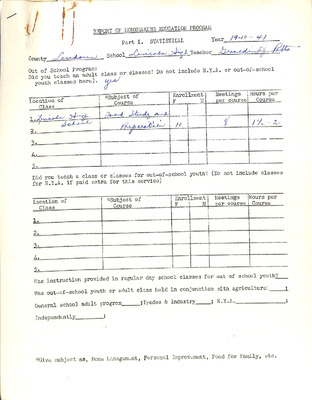 REPORT OF HOMEMAKING EDUCATION PROGRAM
Part I. STATISTICAL Year 1940-41
County Loudoun School Lincoln High Teacher
Out of School Program:
Did you teach an adult class or classes? Do not include N.Y.A. or out-of-school
youth classes here). yes
Location of Class *Subject of Course Enrollment F M Meetings per course Hours per Course
1. Lincoln High School Food Study and Preparation 10 8 1½-2
2.
3.
4.
5.
Did you teach a class or classes for out-of-school youth? (Do not include classes
for N.Y.A. if paid extra for this service)
Location of Class *Subject of Course Enrollment F M Meetings per course Hours per Course
1.
2.
3.
4.
5.
Was instruction provided in regular day school classes for out of school youth?
Was out-of-school youth or adult class held in conjunction with agriculture: ;
General school adult program ; Trades & industry ; N.Y.A. ;
Independently ;
*Give subject as, Home Management, Personal Improvement, Food for Family, etc.